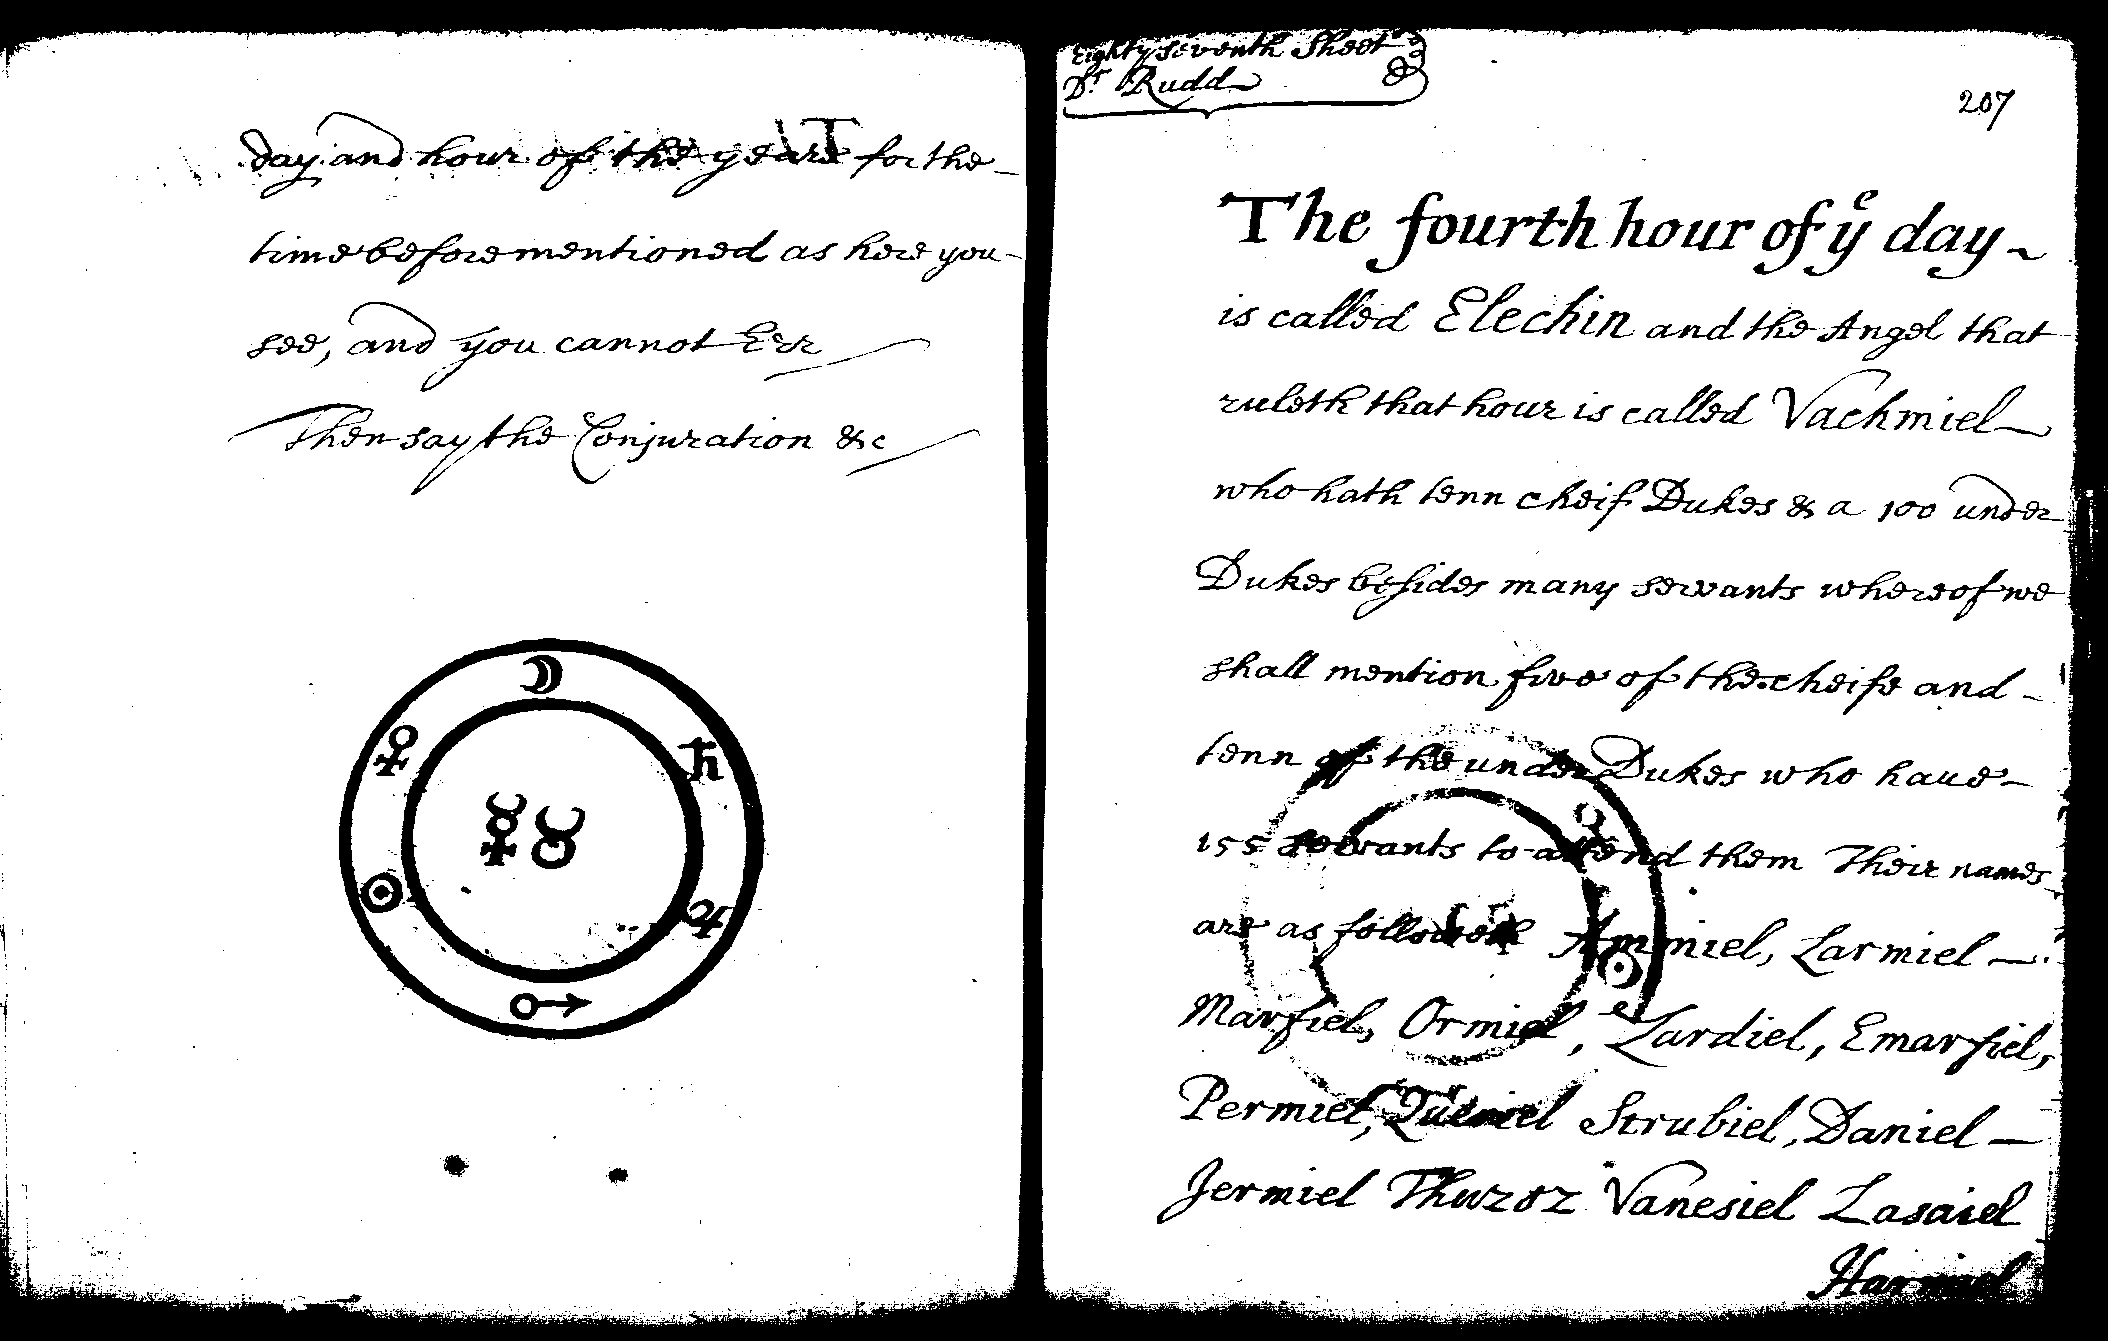 day and hour of the yeare for the
time before mentioned as here you
see, and you cannot Err
Then say the Conjuration &c
☽
♀ ♄
☿ ♉
☉ ♃
♂
Eighty seventh Sheet
Dr. Rudd
207
The fourth hour of yͤ day
is called Elechin and the Angel that
ruleth that hour is called Vachmiel
who hath tenn cheif Dukes & a 100 under
Dukes besides many servants whereof we
shall mention five of the cheife and
tenn of the under Dukes who have
155 servants to attend them Their names
are as followeth Ammiel, Larmiel
Marfiel, Ormiel, Zardiel, Emarfiel,
Permiel, Queriel Strubiel, Daniel
Jermiel Thuzoz Vanesiel Lasaiel
Harmiel